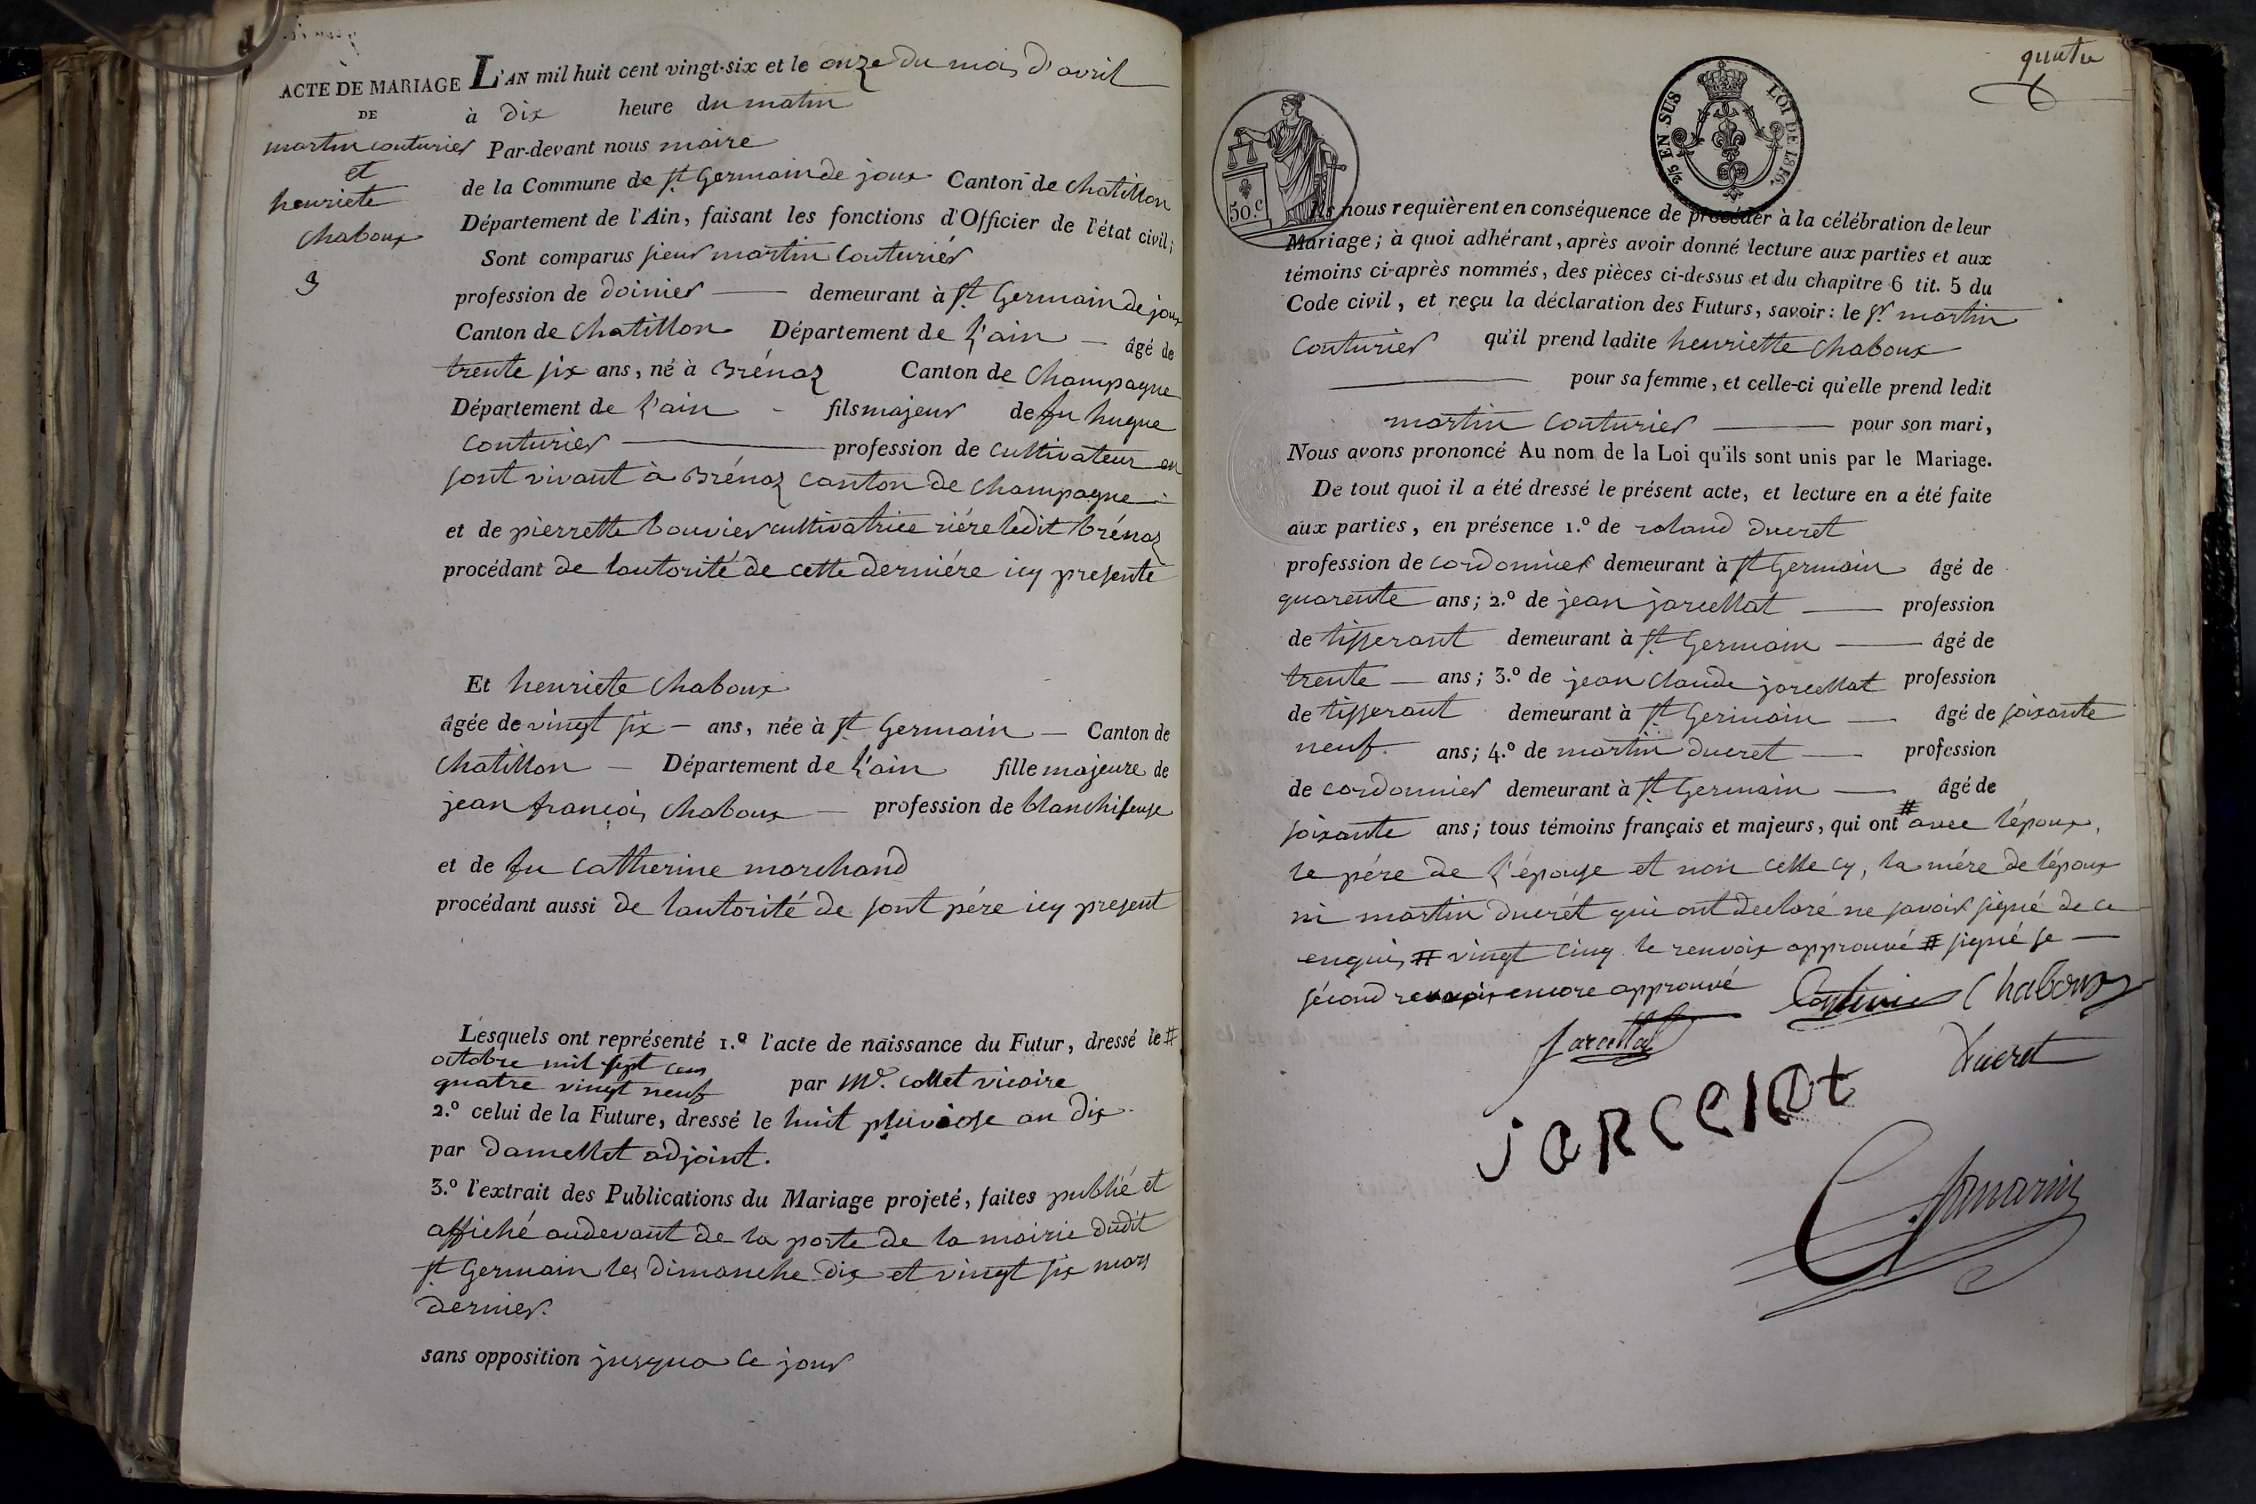 ACTE DE MARIAGE
DE
martin couturier
et
henriete
chaboux
3
L'AN mil huit cent vingt-six et le onze du mois d'avril
à dix heure du matin
Par-devant nous maire
de la Commune de st Germain de joux Canton de chatillon
Département de l'Ain, faisant les fonctions d'Officier de l'état civil;
Sont comparus sieur martin Couturier
profession de doinier demeurant à st Germain de joux
Canton de chatillon Département de l'ain âgé de
trente six ans, né à Brénaz Canton de Champagne
Département de l'ain fils majeur de fu hugue
couturier profession de cultivateur en
sont vivant à Brénaz canton de champagne
et de pierrette bouvier cultivatrice riére ledit brénaz
procédant de lautorité de cette derniére icy presente
Et henriete chaboux
âgée de vingt six ans, née à st Germain Canton de
chatillon Département de l'ain fille majeure de
jean françois chaboux profession de blanchiseuse
et de fu catherine marchand
procédant aussi de lautorité de sont pére icy present
Lesquels ont représenté 1.º l'acte de naissance du Futur, dressé le #
octobre mil sept cens
quatre vingt neuf par Mr. collet vicaire
2.º celui de la Future, dressé le huit pluviose an dix
par damellet adjoint.
3.º l'extrait des Publications du Mariage projeté, faites publié et
affiché audevant de la porte de la mairie dudit
st Germain les dimanche dix et vingt six mars
dernier.
sans opposition jusqua ce jour
quatre
50.c
25 EN SUS LOI DE 1816.
Ils nous requièrent en conséquence de procéder à la célébration de leur
Mariage; à quoi adhérant, après avoir donné lecture aux parties et aux
témoins ci-après nommés, des pièces ci-dessus et du chapitre 6 tit. 5 du
Code civil, et reçu la déclaration des Futurs, savoir: le sr martin
couturier qu'il prend ladite henriette chaboux
pour sa femme, et celle-ci qu'elle prend ledit
martin couturier pour son mari,
Nous avons prononcé Au nom de la Loi qu'ils sont unis par le Mariage.
De tout quoi il a été dressé le présent acte, et lecture en a été faite
aux parties, en présence 1.º de roland ducret
profession de cordonnier demeurant à st Germain âgé de
quarente ans; 2.º de jean jarcellat profession
de tisserant demeurant à st Germain âgé de
trente ans; 3.º de jean claude jarcellat profession
de tisserant demeurant à st Germain âgé de soixante
neuf ans; 4.º de martin ducret profession
de cordonnier demeurant à st Germain âgé de
soixante ans; tous témoins français et majeurs, qui ont # avec l'époux,
le pére de l'épouse et non celle cy, la mére de lépoux
ni martin ducrét qui ont declaré ne savoir signé de ce
enquis # vingt cinq le renvoix approuvé # signé se
sécond renvoix encore approuvé
Couturier Chaboux
Jarcellat
Ducret
jARCelat